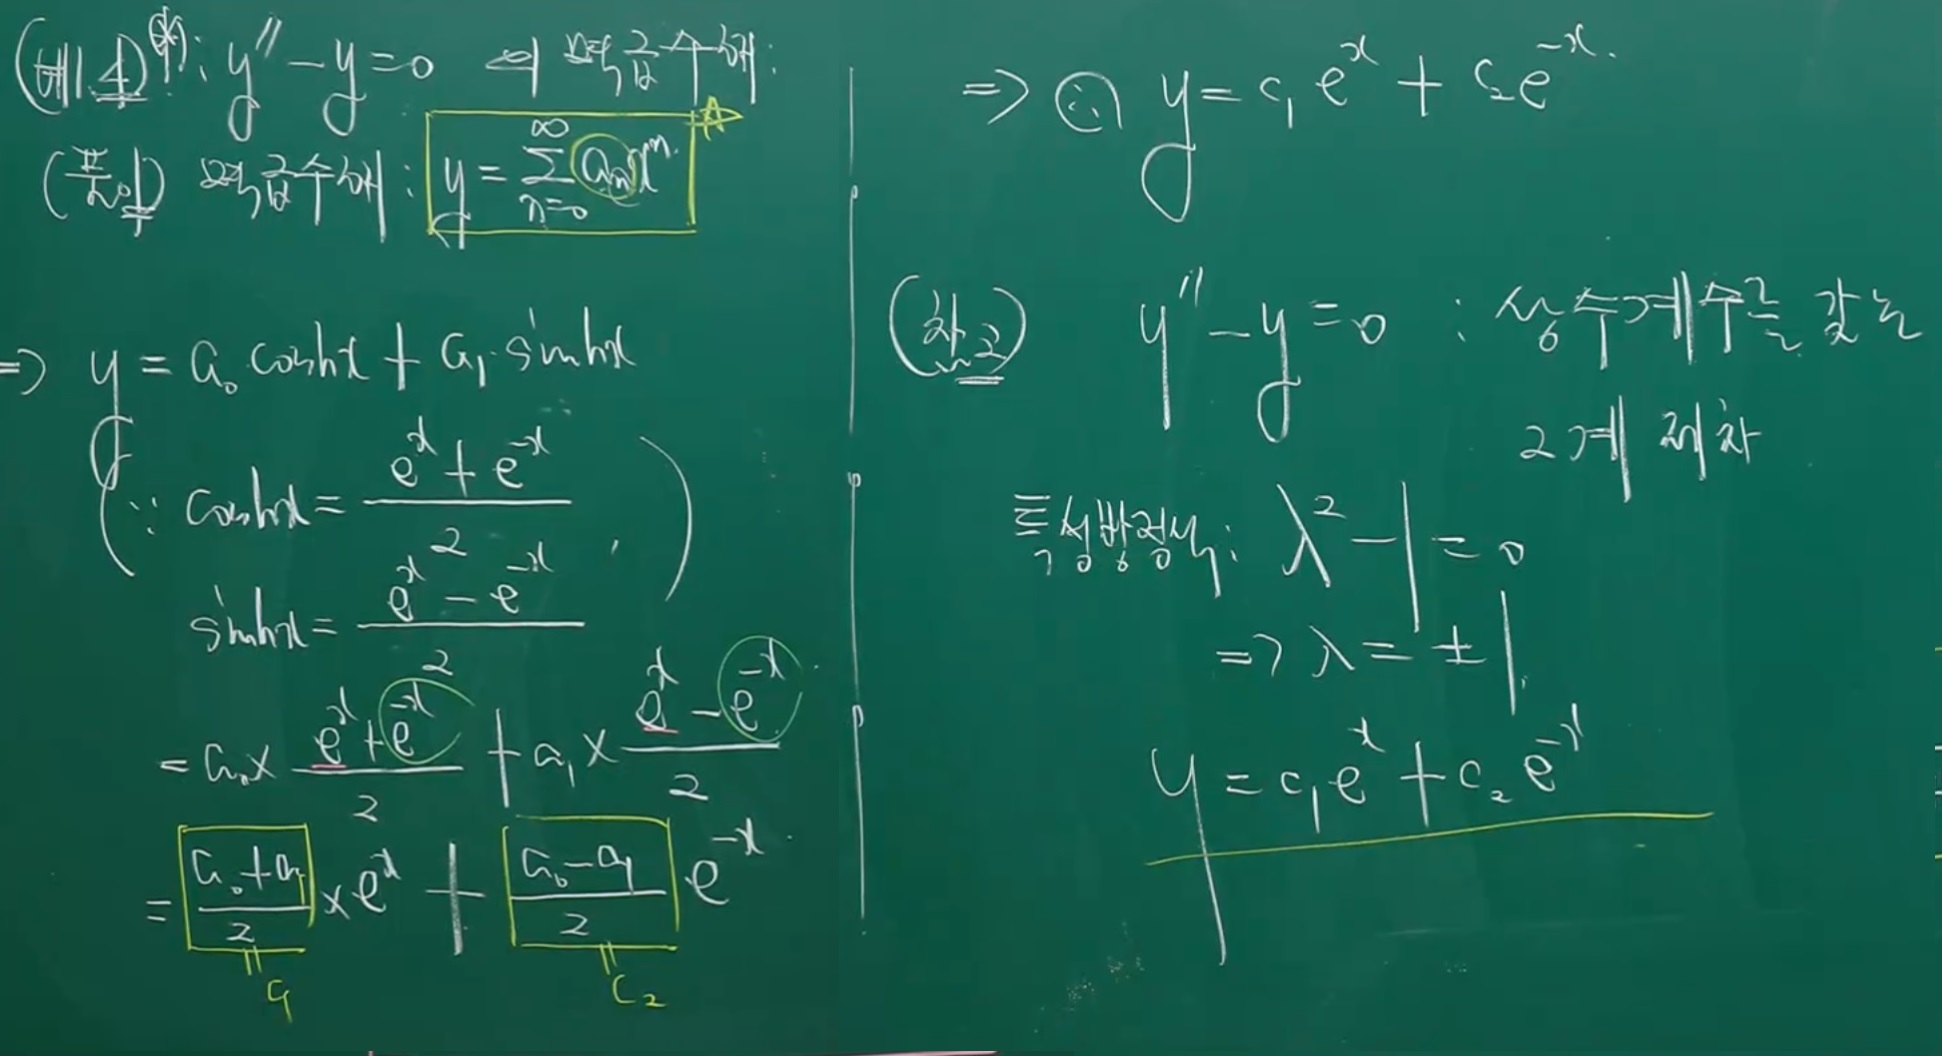 (예 4)(*): y'' - y = 0 ⇐ 멱급수해:
(풀이) 멱급수해: y = ∑_{n=0}^{∞} aₙxⁿ.
⇒ y = a₀ coshx + a₁ · sinhx
(∵ coshx = (e^x + e^{-x})/2 ,
sinhx = (e^x - e^{-x})/2 )
= a₀ × (e^x + e^{-x})/2 + a₁ × (e^x - e^{-x})/2
= (a₀ + a₁)/2 × e^x + (a₀ - a₁)/2 e^{-x}
= C₁
= C₂
⇒ ∴ y = c₁ e^x + c₂ e^{-x}.
y'' - y = 0 : 상수계수를 갖는
2계 제차
특성방정식: λ² - 1 = 0
⇒ λ = ± 1.
y = c₁ e^x + c₂ e^{-x}